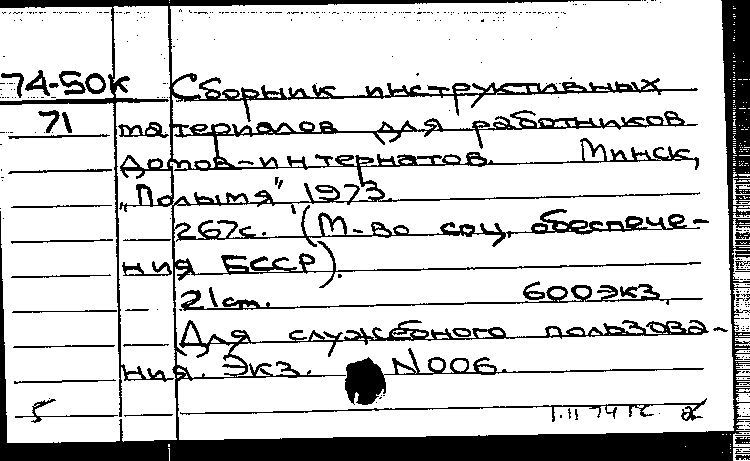 74-50к Сборник инструктивных
71 материалов для работников
домов-интернатов. Минск,
„Полымя", 1973.
267с. (М-во соц. обеспече-
ния БССР).
21 cm. 600 экз.
Для служебного пользова-
ния. Экз. N 006.
5